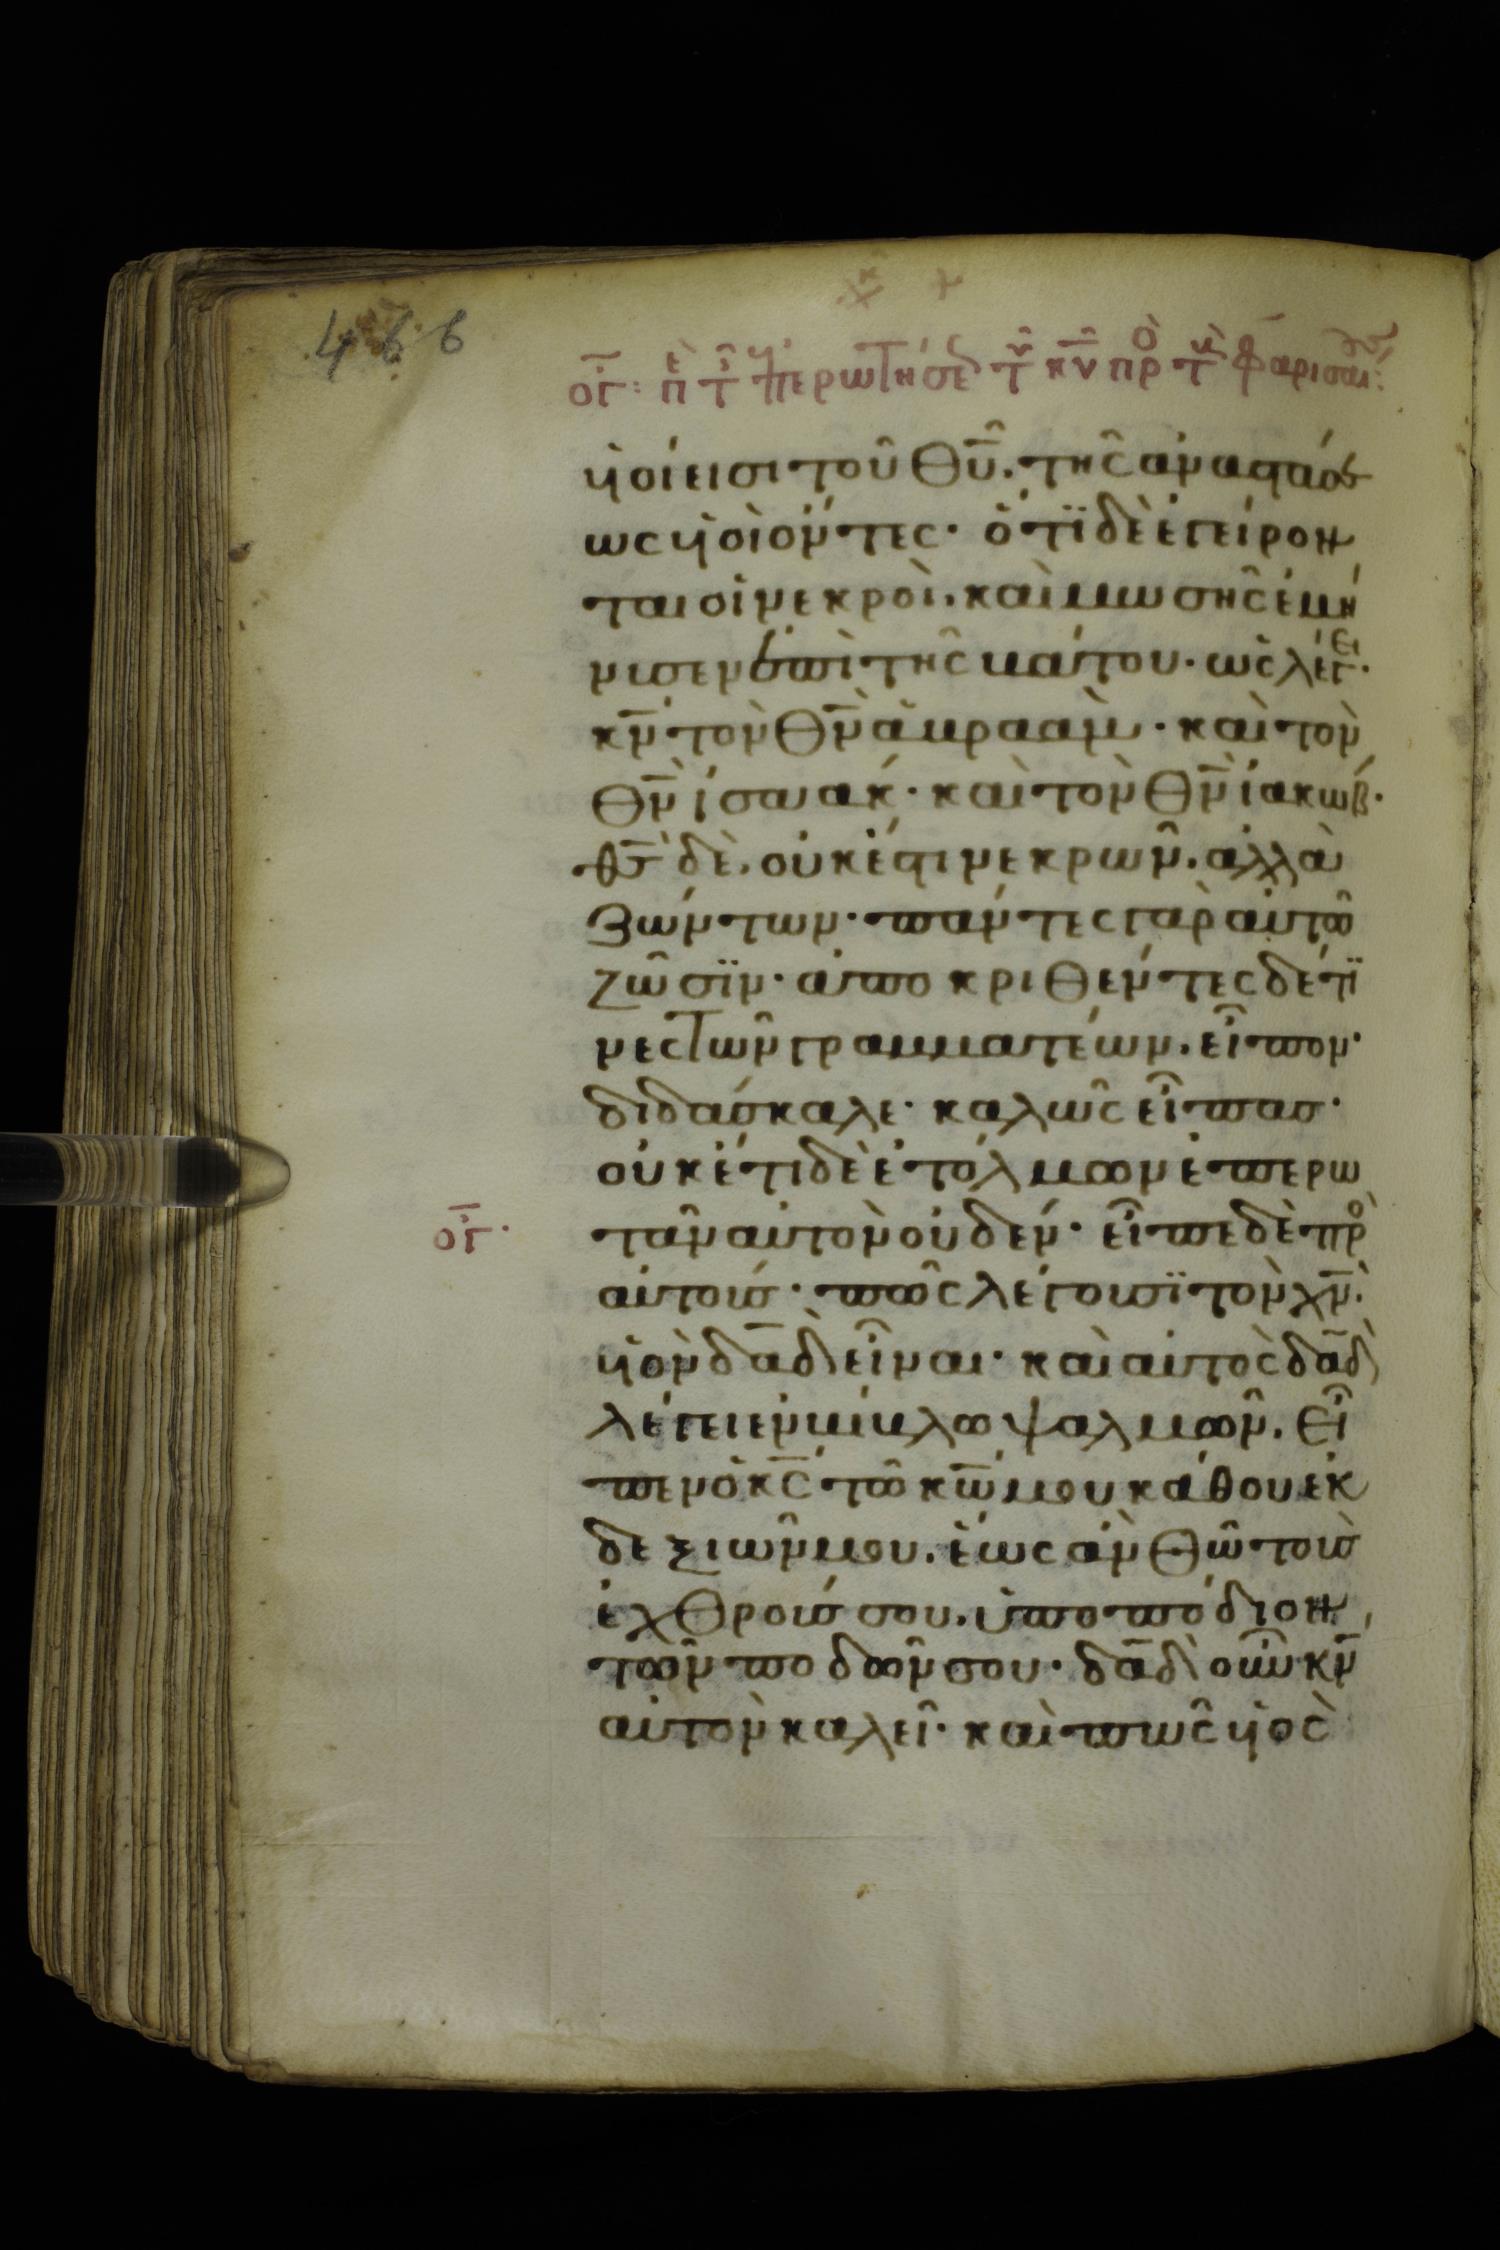 466
ογ: πὲ τῖ ἐπερωτήσε τ κ̅υ̅ πρὸ τ φαρισαι:
ὑοί εισι τοῦ θ̅υ̅. τῆς ἀναστάσε
ως ὑοὶ ὄντες· ὅτϊ δὲ ἐγείρον
ται οἱ νεκροὶ. καὶ μωσῆς ἐμή
νισεν ἐπὶ τῆς βάτου· ὡς λέγει·
κ̅ν̅ τὸν θ̅ν̅ ἀβραὰμ· καὶ τὸν
θ̅ν̅ ἰσαάκ· καὶ τὸν θ̅ν̅ ἰακώβ·
θ̅ς̅ δὲ. οὐκ ἔστι νεκρῶν. ἀλλὰ
ζώντων· πάντες γὰρ αὐτῶ
ζῶσϊν· ἀποκριθέντες δέ τϊ
νες τῶν γραμματέων. εἶπον·
διδάσκαλε· καλῶς εἶπας·
οὐκέτι δὲ ἐτόλμων ἐπερω
τᾶν αὐτὸν οὐδέν· εἶπε δὲ πρὸ
ογ·
αὐτούς· πῶς λέγουσϊ τὸν χ̅ν̅
ὑὸν δ̅α̅δ̅ εἶναι· καὶ αὐτὸς δ̅α̅δ̅
λέγει ἐν βίβλω ψαλμῶν. εἶ
πεν ὁ κ̅ς̅ τῶ κ̅ω̅ μου κάθου ἐκ
δεξιῶν μου. ἕως ἂν θῶ τοὺς
ἐχθρούς σου. ὑποπόδιον
τῶν ποδῶν σου· δ̅α̅δ̅ οὖν κ̅ν̅
αὐτὸν καλεῖ· καὶ πῶς ὑὸς